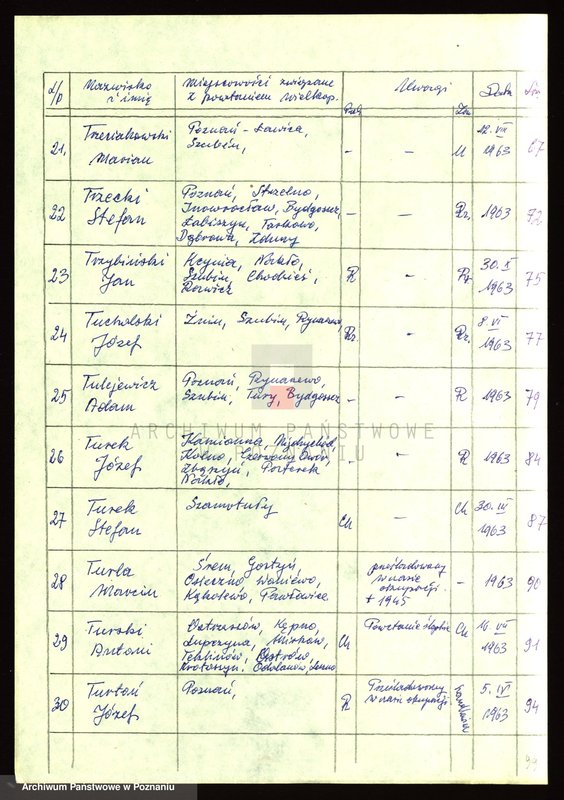 L/p Nazwisko i imię Miejscowości związane z powstaniem wielkop. Uwagi Data
21. Poznań - Ławica, Szubin, - - U 12. VII 1963 67
Marian
22 Trzecki Stefan Poznań, Strzelno,
Inowrocław, Bydgoszcz,
Łabiszyn,
Dąbrowa, - - Rz. 1963 72
23 Jan Kcynia, Nakło,
Szubin, Chodzież,
Rawicz R - 30. X 1963 75
24 Tucholski Józef Żnin, Szubin, Rynarzewo Rz. - Rz. 8. VI 1963 77
25 Tulejewicz Adam Poznań, Rynarzewo,
Szubin, Tury, Bydgoszcz - - R 1963 79
26 Turek Józef Kamionna, Międzychód
Kolno, Czerwony Dwór,
Zbąszyń,
Nakło, - - R 1963 84
27 Turek Stefan Szamotuły Ch - Ch 30. III 1963 87
28 Turła Marcin Śrem, Gostyń,
Osieczna
Kąkolewo, Pawłowice prześladowany
w czasie
okupacji
+ 1945 - 1963 90
29 Turski Antoni Ostrzeszów, Kępno,
Krotoszyn, Odolanów, Ch Powstanie śląskie Ch 16. VII 1963 91
30 Józef Poznań, R Prześladowany
w czasie okupacji 5. IV 1963 94
ARCHIWUM PAŃSTWOWE
W POZNANIU
Archiwum Państwowe w Poznaniu